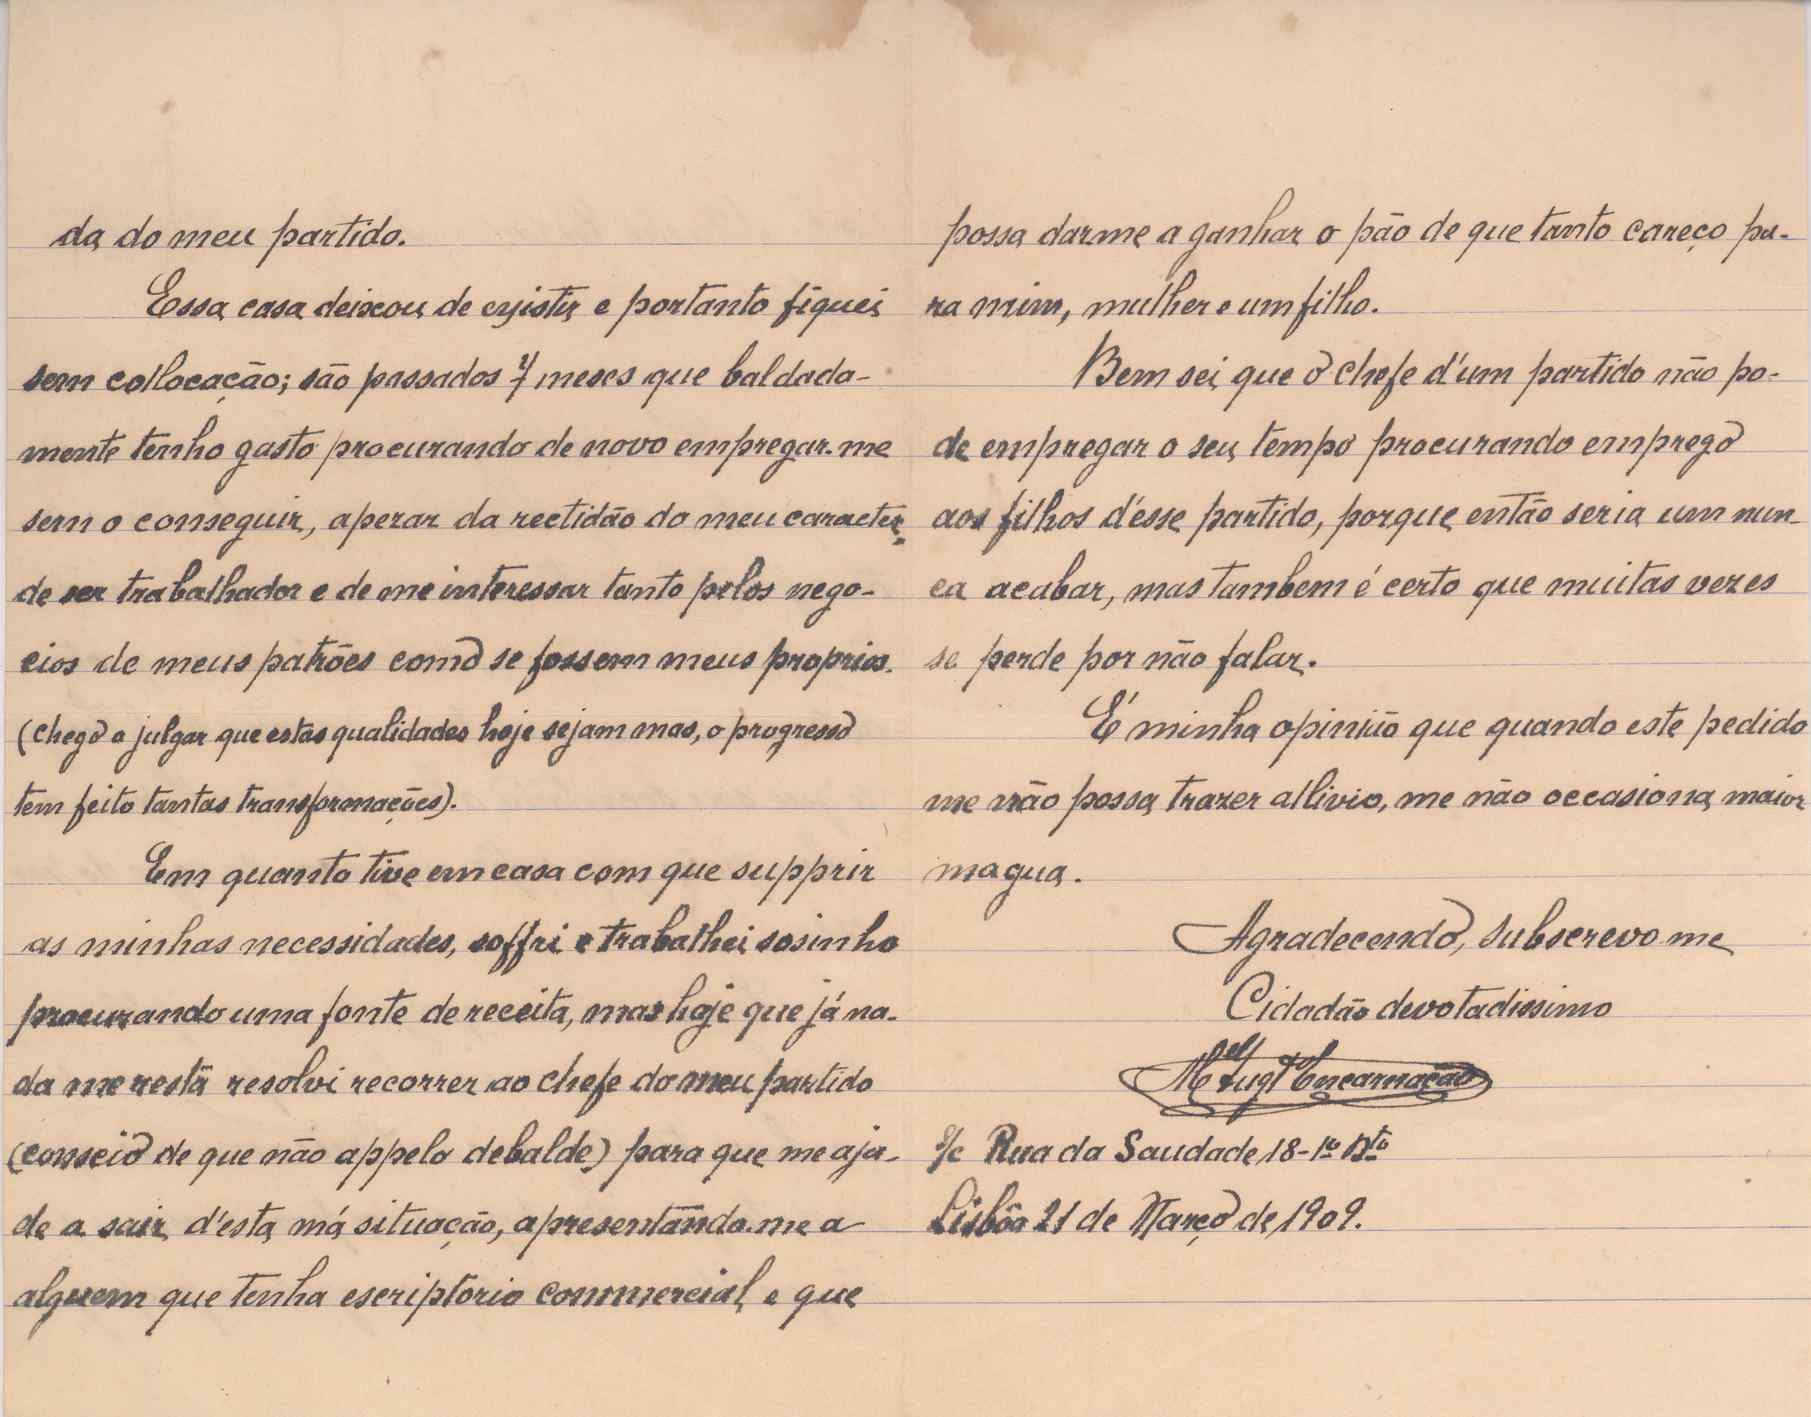 da do meu partido.
Essa casa deixou de existir e portanto fiquei
sem collocação; são passados 7 meses que baldada-
mente tenho gasto procurando de novo empregar-me
sem o conseguir, apezar da rectidão do meu caracter,
de ser trabalhador e de me interessar tanto pelos nego-
cios de meus patrões como se fossem meus proprios.
(chego a julgar que estas qualidades hoje sejam mas, o progresso
tem feito tantas transformações).
Em quanto tive em casa com que supprir
as minhas necessidades, soffri e trabalhei sosinho
procurando uma fonte de receita, mas hoje que já na-
da me resta resolvi recorrer ao chefe do meu partido
(conscio de que não appelo debalde) para que me aju-
de a sair d'esta má situação, apresentando-me a
alguem que tenha escriptorio commercial, e que
possa dar-me a ganhar o pão de que tanto careço pa-
ra mim, mulher e um filho.
Bem sei que o chefe d'um partido não po-
de empregar o seu tempo procurando emprego
aos filhos d'ésse partido, porque então seria um nun-
ca acabar, mas tambem é certo que muitas vezes
se perde por não falar.
É minha opinião que quando este pedido
me não possa trazer allivio, me não occasiona maior
magua.
Agradecendo, subscrevo me
Cidadão devotadissimo
Mel Augt Encarnação
S/c Rua da Saudade, 18-1º Dto
Lisbôa 21 de Março de 1909.